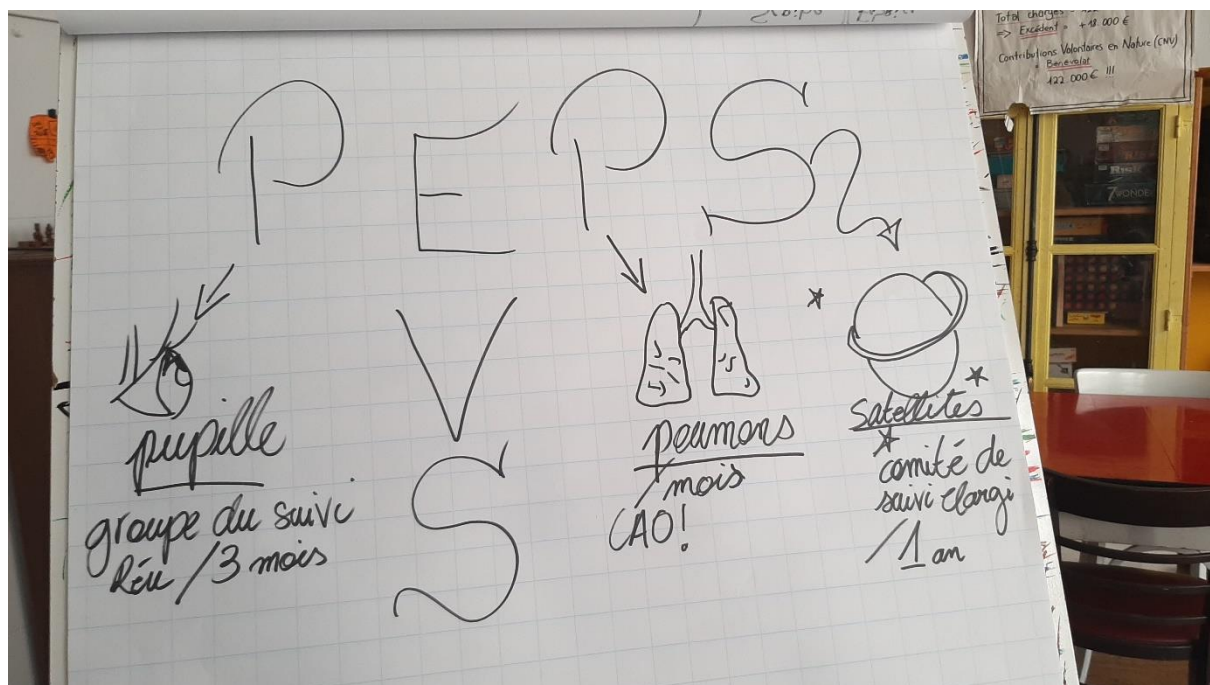 Total charges
=> Excédent = +18.000 €
Contributions Volontaires en Nature (CNV)
Bénévolat
122 000 € !!!
7 WONDE
PEPS
V
S
pupille
groupe du suivi
Réu / 3 mois
poumons
/mois
CAO!
Satellites
comité de
suivi élargi
/1 an